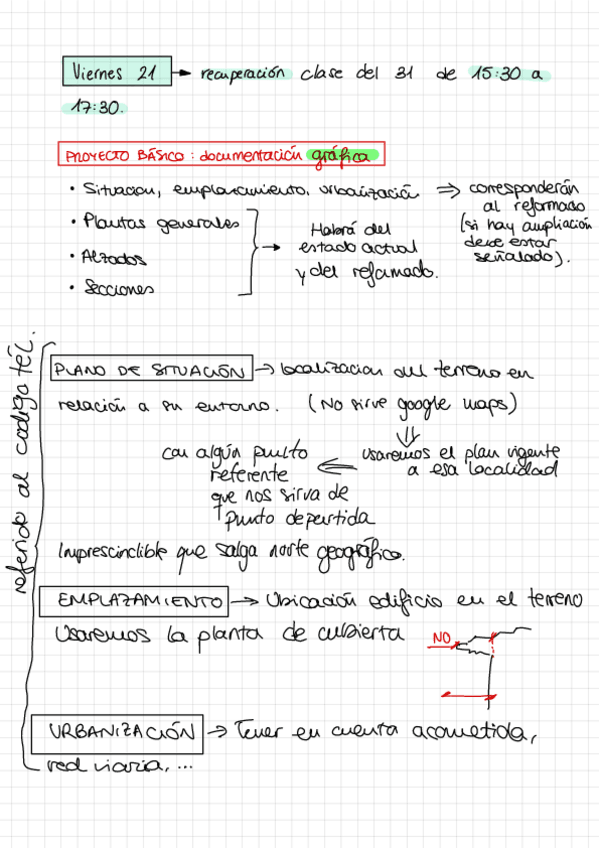 Viernes 21 → recuperación clase del 31 de 15:30 a
17:30.
PROYECTO BÁSICO: documentación gráfica
• Situacion, emplazamiento, urbanización ⇒ corresponderán
al reformado
(si hay ampliación
debe estar
señalado).
• Plantas generales
• Alzados
• Secciones
→ Habrá del
estado actual
y del reformado.
referido al codigo téc.
PLANO DE SITUACIÓN → localizacion del terreno en
relación a su entorno. (No sirve google maps)
usaremos el plan vigente
a esa localidad
con algún punto
referente
que nos sirva de
punto de partida
Imprescindible que salga norte geográfico.
EMPLAZAMIENTO → Ubicación edificio en el terreno
Usaremos la planta de cubierta
NO
URBANIZACIÓN → Tener en cuenta acometida,
red viaria, ...